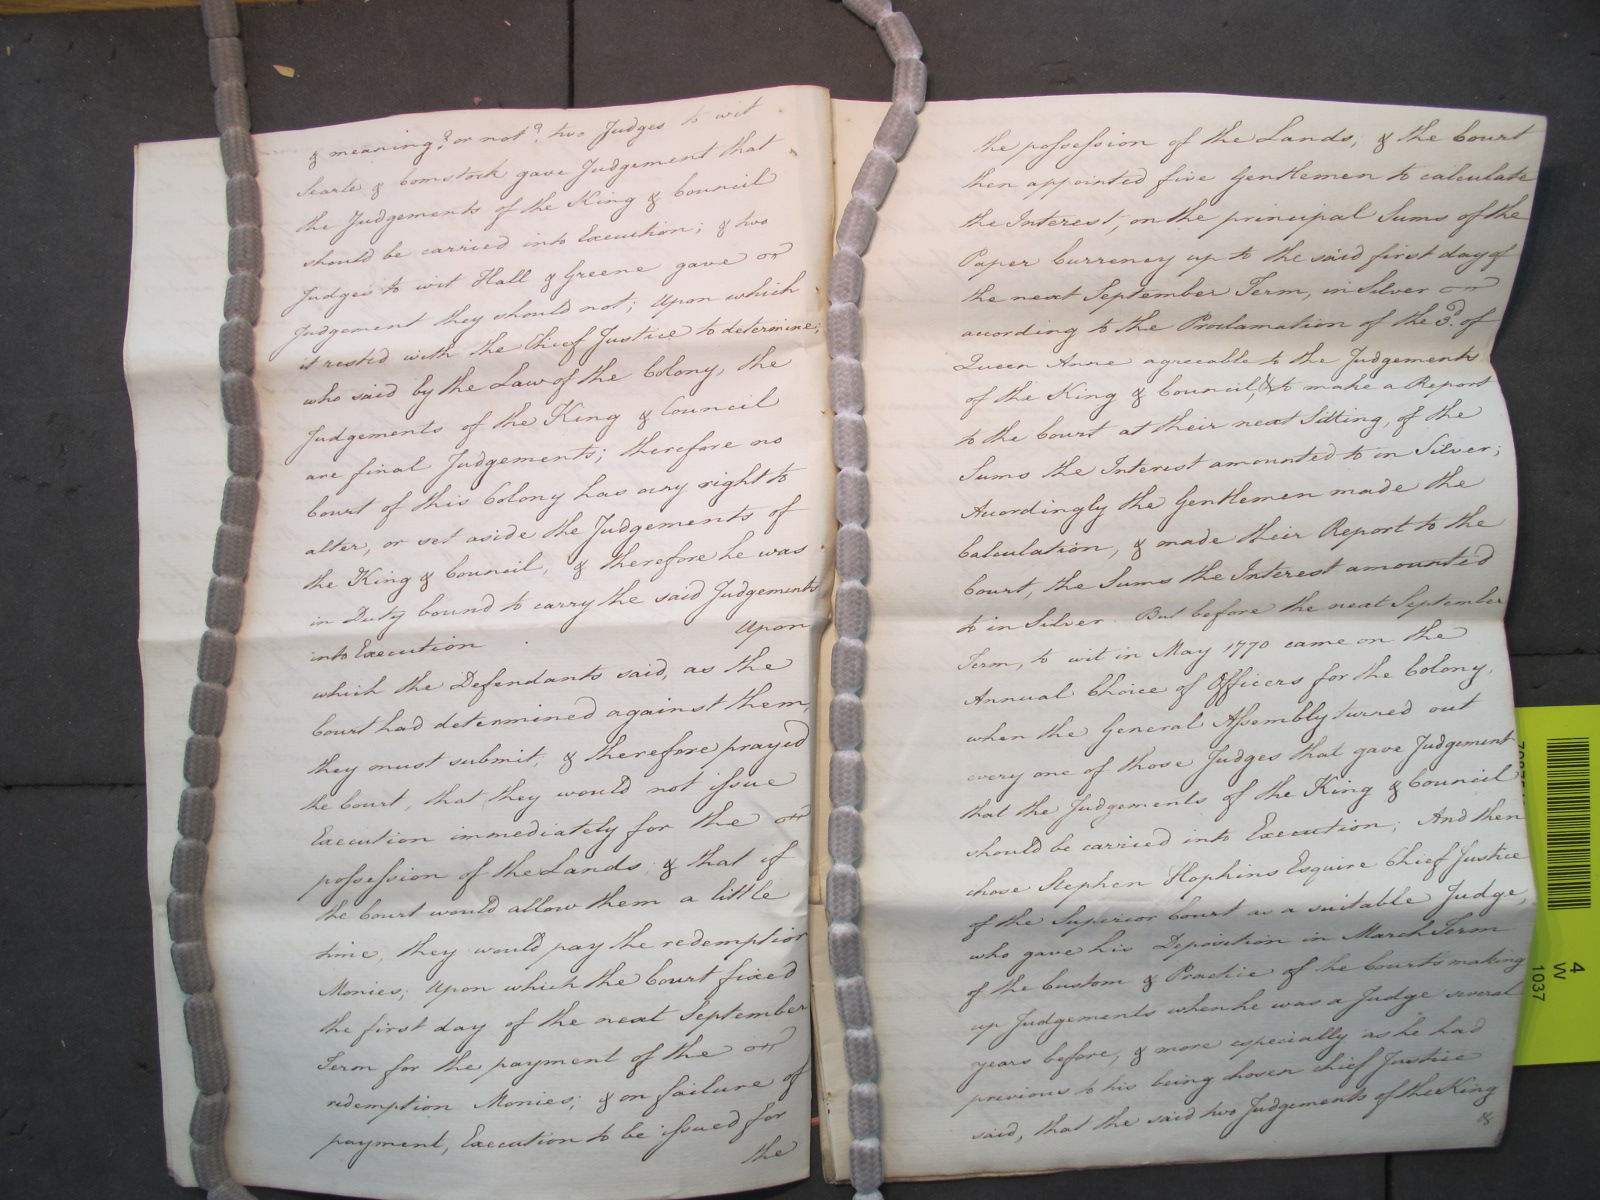 & meaning? or not? two Judges to wit
Searle & Comstock gave Judgement that
the Judgements of the King & Council
should be carried into Execution; & two
Judges to wit Hall & Greene gave
Judgement they should not; Upon which
it rested with the Chief Justice to determine;
who said by the Law of the Colony, the
Judgements of the King & Council
are final Judgements; therefore no
Court of this Colony has any right to
alter, or set aside the Judgements of
the King & Council, & therefore he was
in Duty bound to carry the said Judgements
into Execution Upon
which the Defendants said, as the
Court had determined against them,
they must submit, & therefore prayed
the Court, that they would not issue
Execution immediately for the
possession of the Lands, & that if
the Court would allow them a little
time, they would pay the redemption
Monies; Upon which the Court fixed
the first day of the next September
Term for the payment of the
redemption Monies; & on failure of
payment, Execution to be issued for
the
the possession of the Lands, & the Court
then appointed five Gentlemen to calculate
the Interest, on the principal Sums of the
Paper Currency up to the said first day of
the next September Term, in Silver
according to the Proclamation of the 3d. of
Queen Anne agreeable to the Judgements
of the King & Council, & to make a Report
to the Court at their next Sitting, of the
Sums the Interest amounted to in Silver;
Accordingly the Gentlemen made the
Calculation, & made their Report to the
Court, the Sums the Interest amounted
to in Silver. But before the next September
Term, to wit in May 1770 came on the
Annual Choice of Officers for the Colony,
when the General Assembly turned out
every one of those Judges that gave Judgement
that the Judgements of the King & Council
should be carried into Execution; And then
chose Stephen Hopkins Esquire Chief Justice
of the Superior Court as a suitable Judge,
who gave his Deposition in March Term
of the Custom & Practice of the Courts making
up Judgements when he was a Judge several
years before, & more especially as he had
previous to his being chosen Chief Justice
said, that the said two Judgements of the King
&
4
W
1037